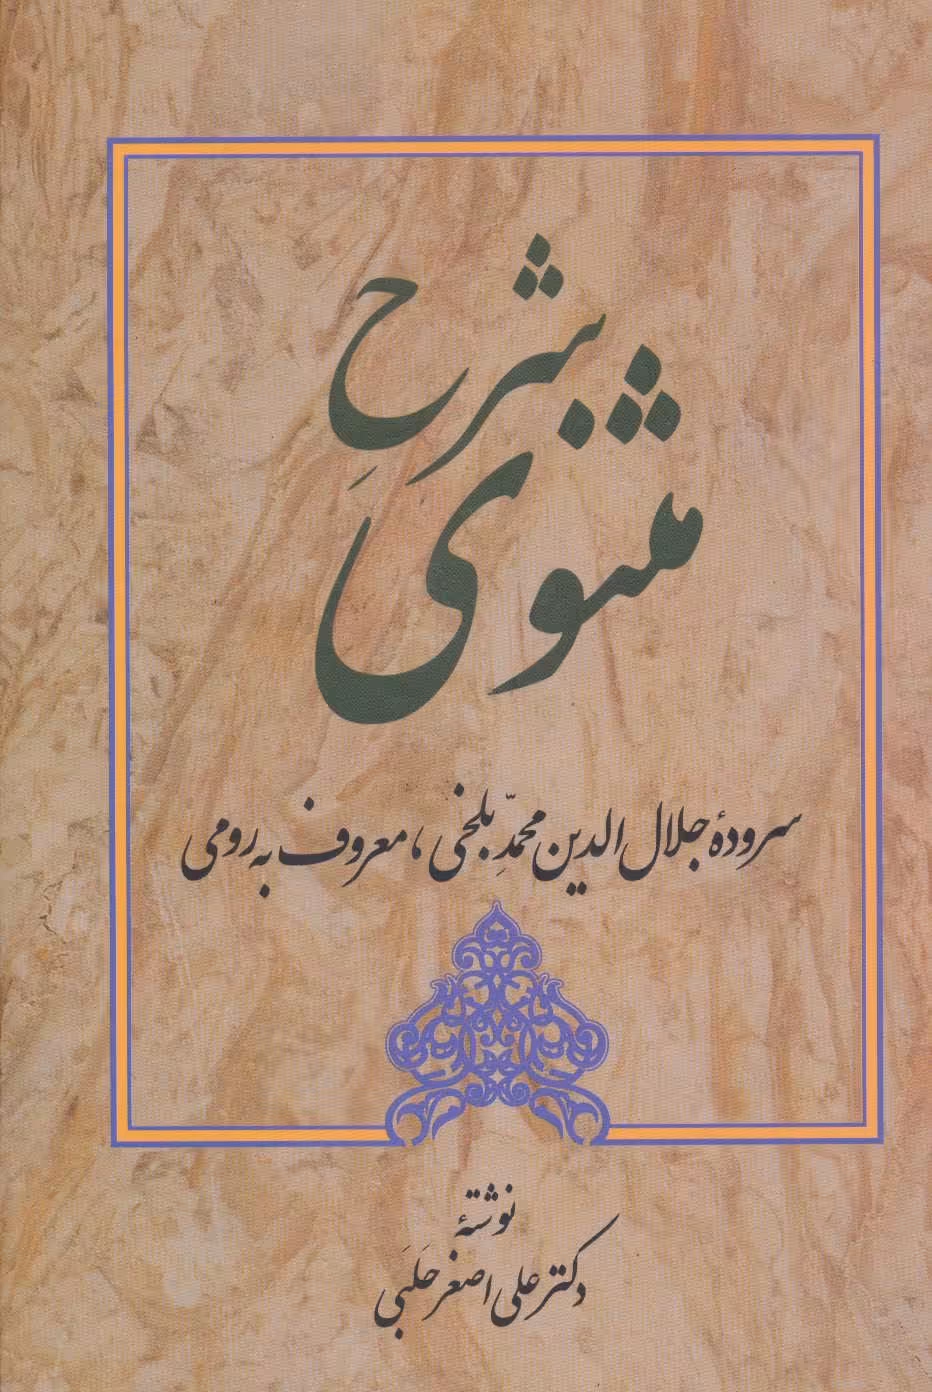 شرحِ
مثنوی
سرودهٔ جلال الدین محمّدِ بلخی، معروف به رومی
نوشتهٔ
دکتر علی اصغر حَلَبی